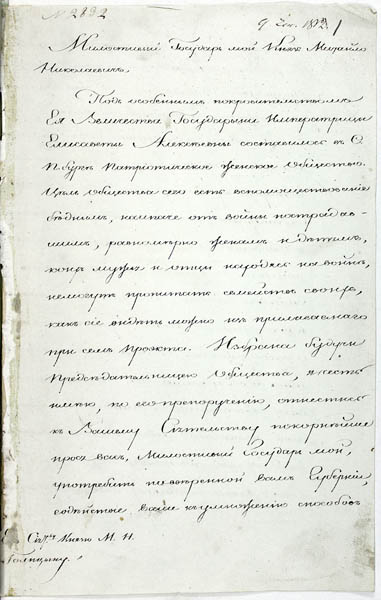 № 2892
9 Дек. 1812
Милостивый Государь мой Князь Михайло
Николаевичь,
Подъ особеннымъ покровительствомъ
Ея Величества Государыни Императрицы
Елисаветы Алексѣевны составилось въ С.
П.бургѣ Патріотическое женское Общество.
Цѣль Общества сего есть вспомоществованіе
бѣднымъ, наипаче отъ войны пострадав-
шимъ, равномѣрно женамъ и дѣтямъ,
коихъ мужья и отцы находясь на войнѣ,
не могутъ пропитать семействъ своихъ,
какъ сіе видѣть можно изъ прилагаемаго
при семъ проэкта. Избрана будучи
Предсѣдательницею Общества, я честь
имѣю, по его препорученію, отнестись
къ Вашему Сіятельству покорнѣйше
прося васъ, Милостивый Государь мой,
употребить по ввѣренной вамъ Губерніи,
содѣйствіе ваше къ умноженію способовъ
Его Сія-ву Князю М. Н.
Голицыну.